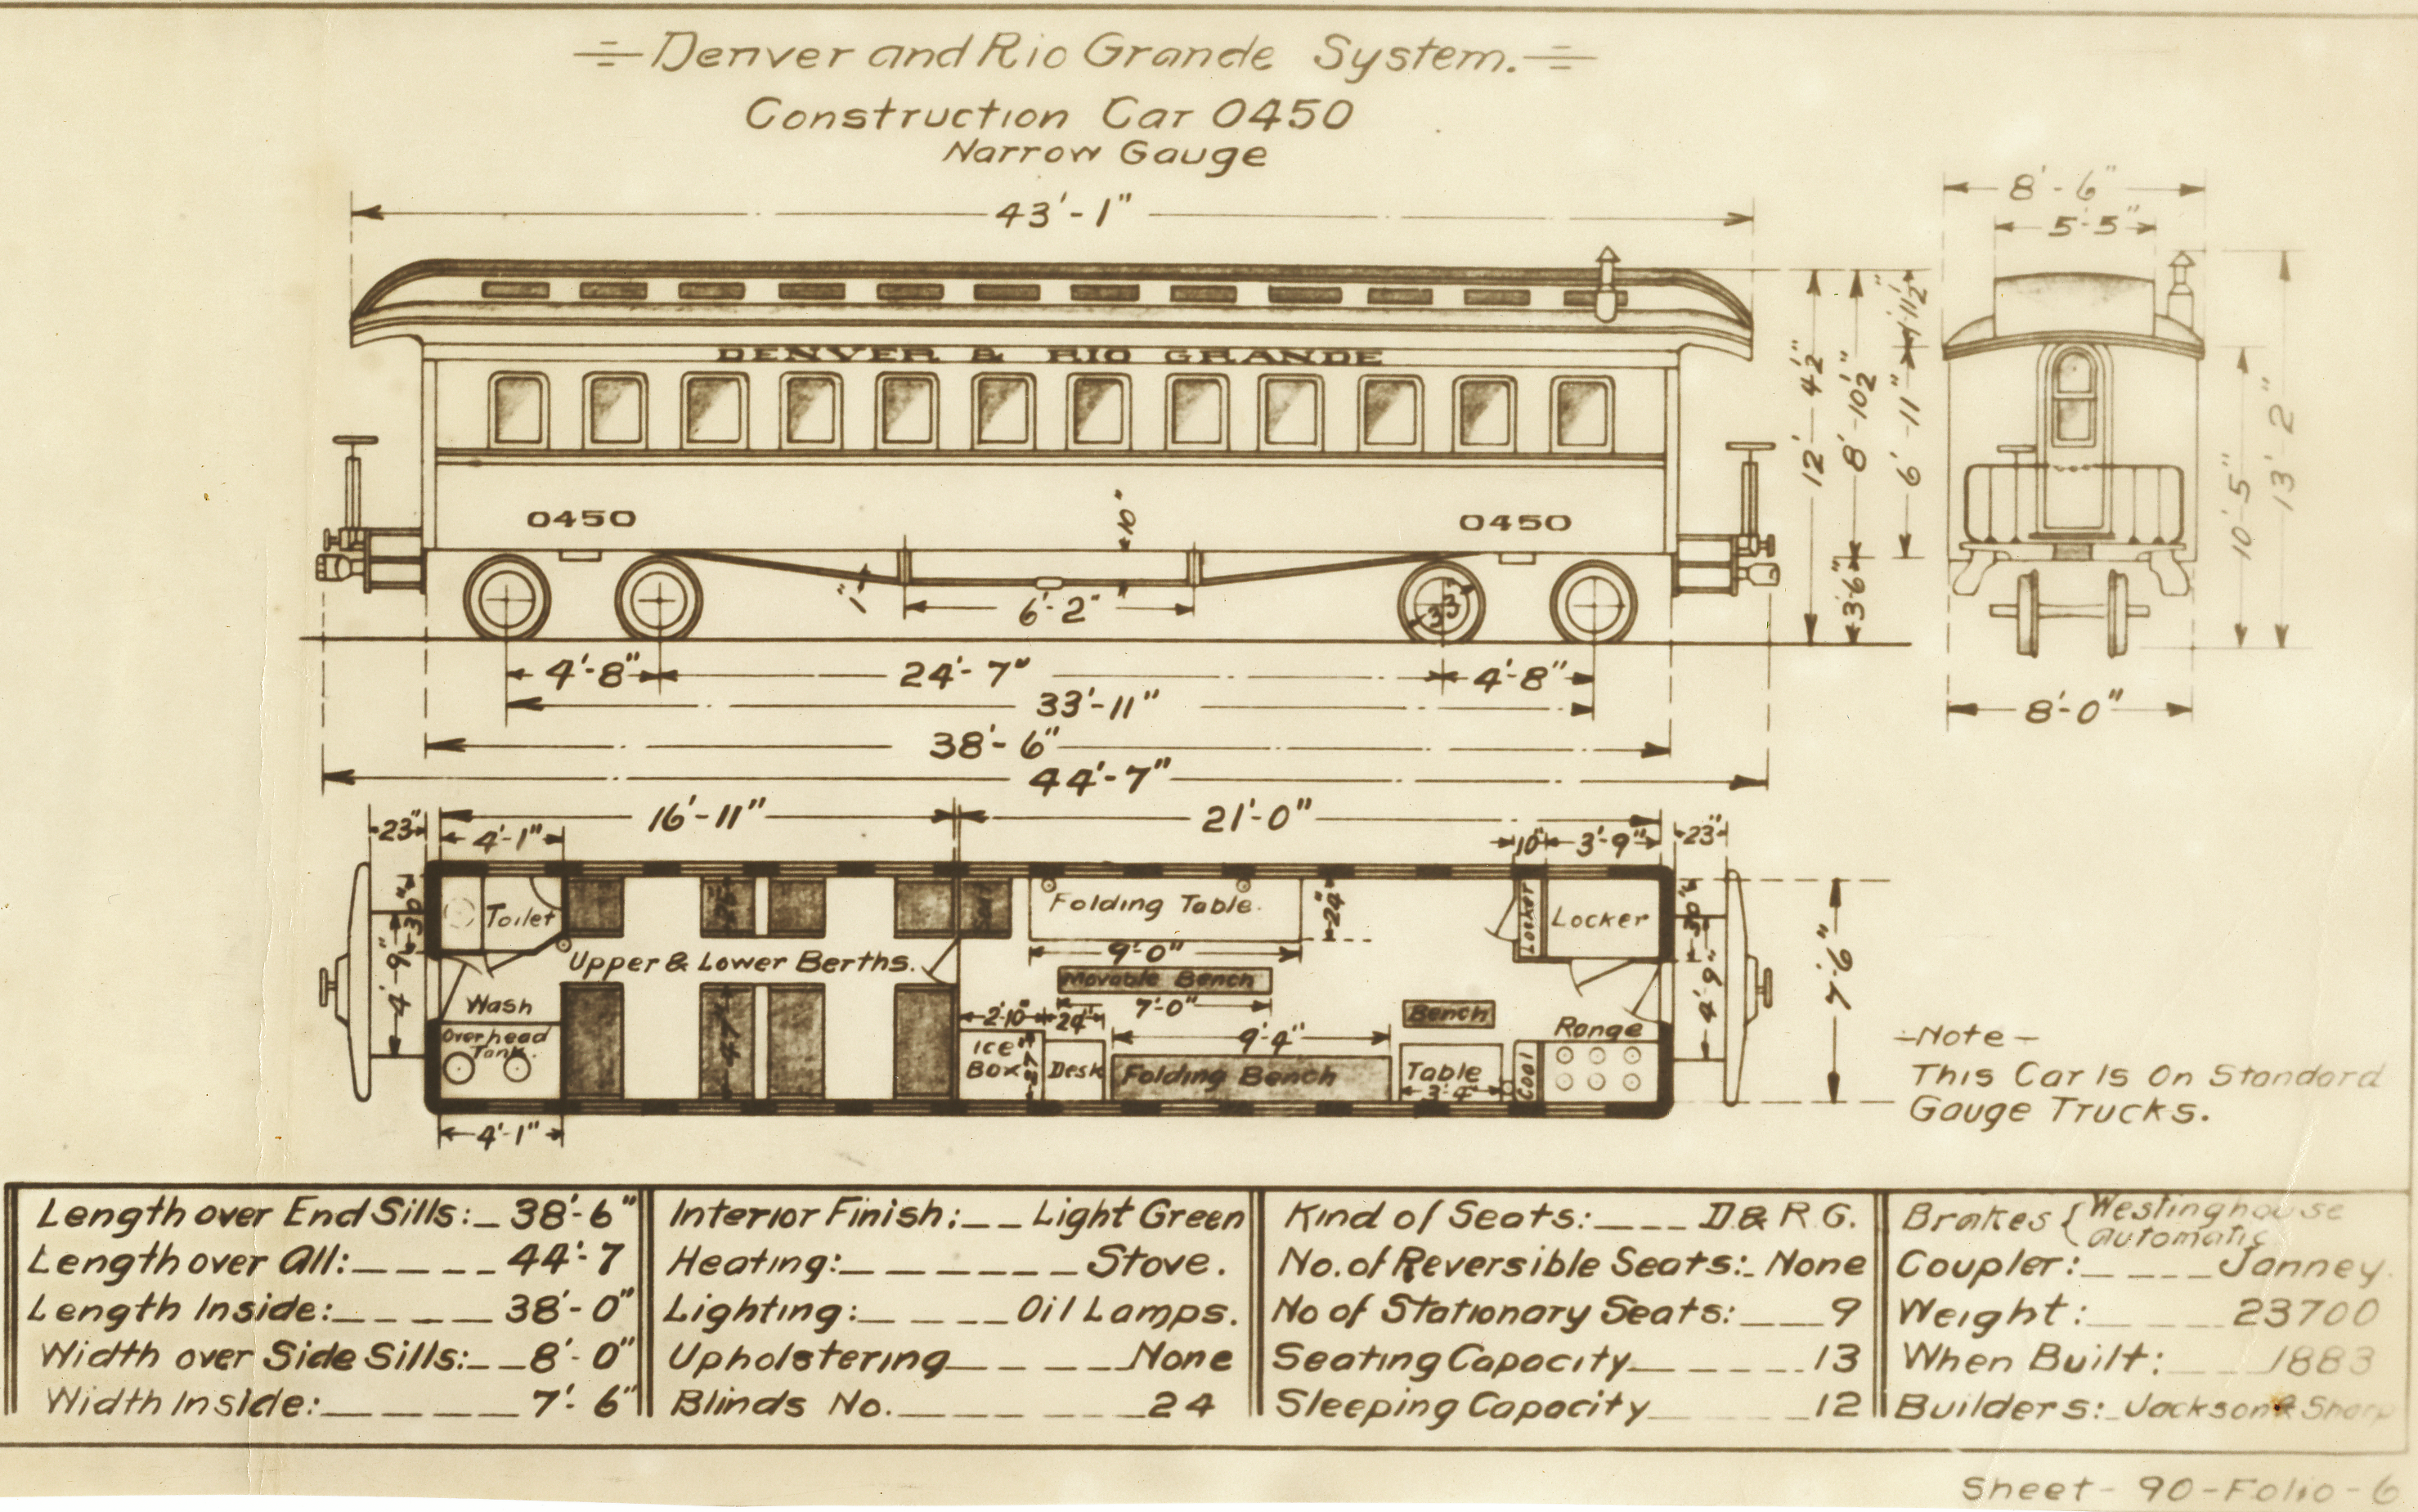 Denver and Rio Grande System.
Construction Car 0450
Narrow Gauge
43'-1"
8'-6"
5'-5"
DENVER & RIO GRANDE
0450
0450
10"
1"
6'-2"
33"
12'-4½"
8'-10½"
3'6"
1'-11½"
6'-11"
10'-5"
13'-2"
4'-8"
24'-7"
4'-8"
33'-11"
8'-0"
38'-6"
44'-7"
16'-11"
21'-0"
23"
4'-1"
10"
3'-9"
23"
30"
4'-9"
Toilet
Upper & Lower Berths.
Wash
Overhead
Tank.
47"
Folding Table.
24"
9'-0"
Movable Bench
7'-0"
2'-10"
24"
9'-4"
Ice
Box
Desk
Folding Bench
Bench
Table
3'-4"
Coal
Range
Locker
Locker
30"
4'-9"
7'-6"
4'-1"
-Note-
This Car Is On Standard
Gauge Trucks.
Length over End Sills: 38'-6"
Length over All: 44'-7
Length Inside: 38'-0"
Width over Side Sills: 8'-0"
Width Inside: 7'-6"
Interior Finish: Light Green
Heating: Stove.
Lighting: Oil Lamps.
Upholstering None
Blinds No. 24
Kind of Seats: D.& R.G.
No. of Reversible Seats: None
No of Stationary Seats: 9
Seating Capacity 13
Sleeping Capacity 12
Brakes { Westinghouse
Automatic
Coupler: Janney.
Weight: 23700
When Built: 1883
Builders: Jackson & Sharp
Sheet-90-Folio-6